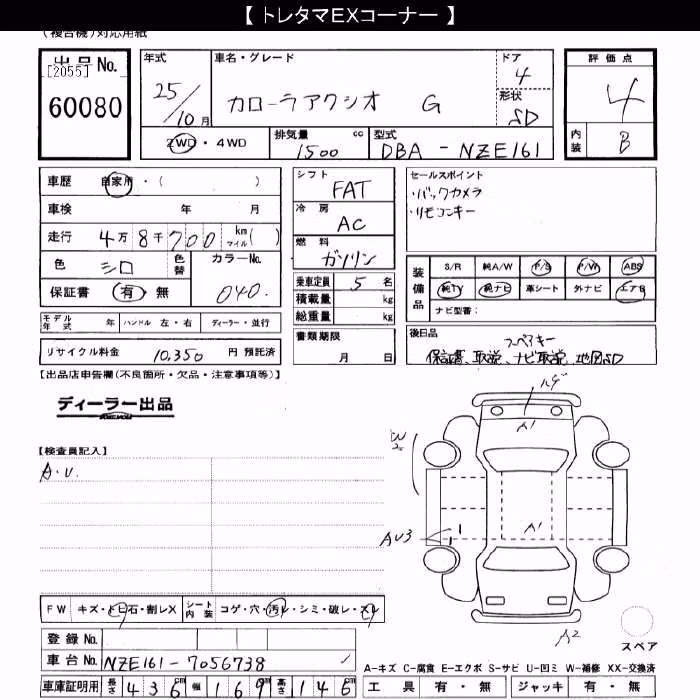 【 トレタマEXコーナー 】
(複合機)対応用紙
出品No.
[2055]
60080
年式
25/10月
車名・グレード
カローラアクシオ G
ドア
4
形状
SD
2WD・4WD
排気量 cc
1500
型式
DBA-NZE161
評価点
4
内装
B
車歴 自家用・( )
車検 年 月
走行 4万8千700 km マイル( )
色 シロ 色替
カラーNo.
040.
保証書 有 無
モデル年式 年 ハンドル 左・右 ディーラー・並行
リサイクル料金 10,350 円 預託済
シフト
FAT
冷房
AC
燃料
ガソリン
乗車定員 5 名
積載量 kg
総重量 kg
書類期限
月 日
セールスポイント
・バックカメラ
・リモコンキー
装備品
S/R 純A/W P/S P/W ABS
純TV 純ナビ 革シート 外ナビ エアB
ナビ型番:
後日品
スペアキー
保証書、取説、ナビ取説、地図SD
【出品店申告欄(不良箇所・欠品・注意事項等)】
ディーラー出品
【検査員記入】
A・U.
ハゲ
A1
W2
AU3
A1
A2
スペア
FW キズ・トビ石・割レX
シート内装 コゲ・穴・汚レ・シミ・破レ・スレ
登録No.
車台No. NZE161-7056738
車庫証明用 長さ 436cm 幅 169cm 高さ 146cm
A-キズ C-腐食 E-エクボ S-サビ U-凹ミ W-補修 XX-交換済
工具 有・無 ジャッキ 有・無